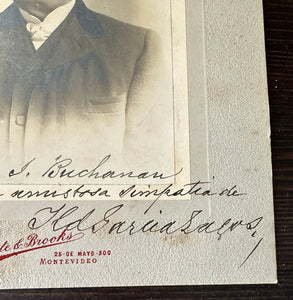 J. Buchanan
amistosa simpatia de
Ild García Lagos
te & Brooks
25 DE MAYO-300
MONTEVIDEO